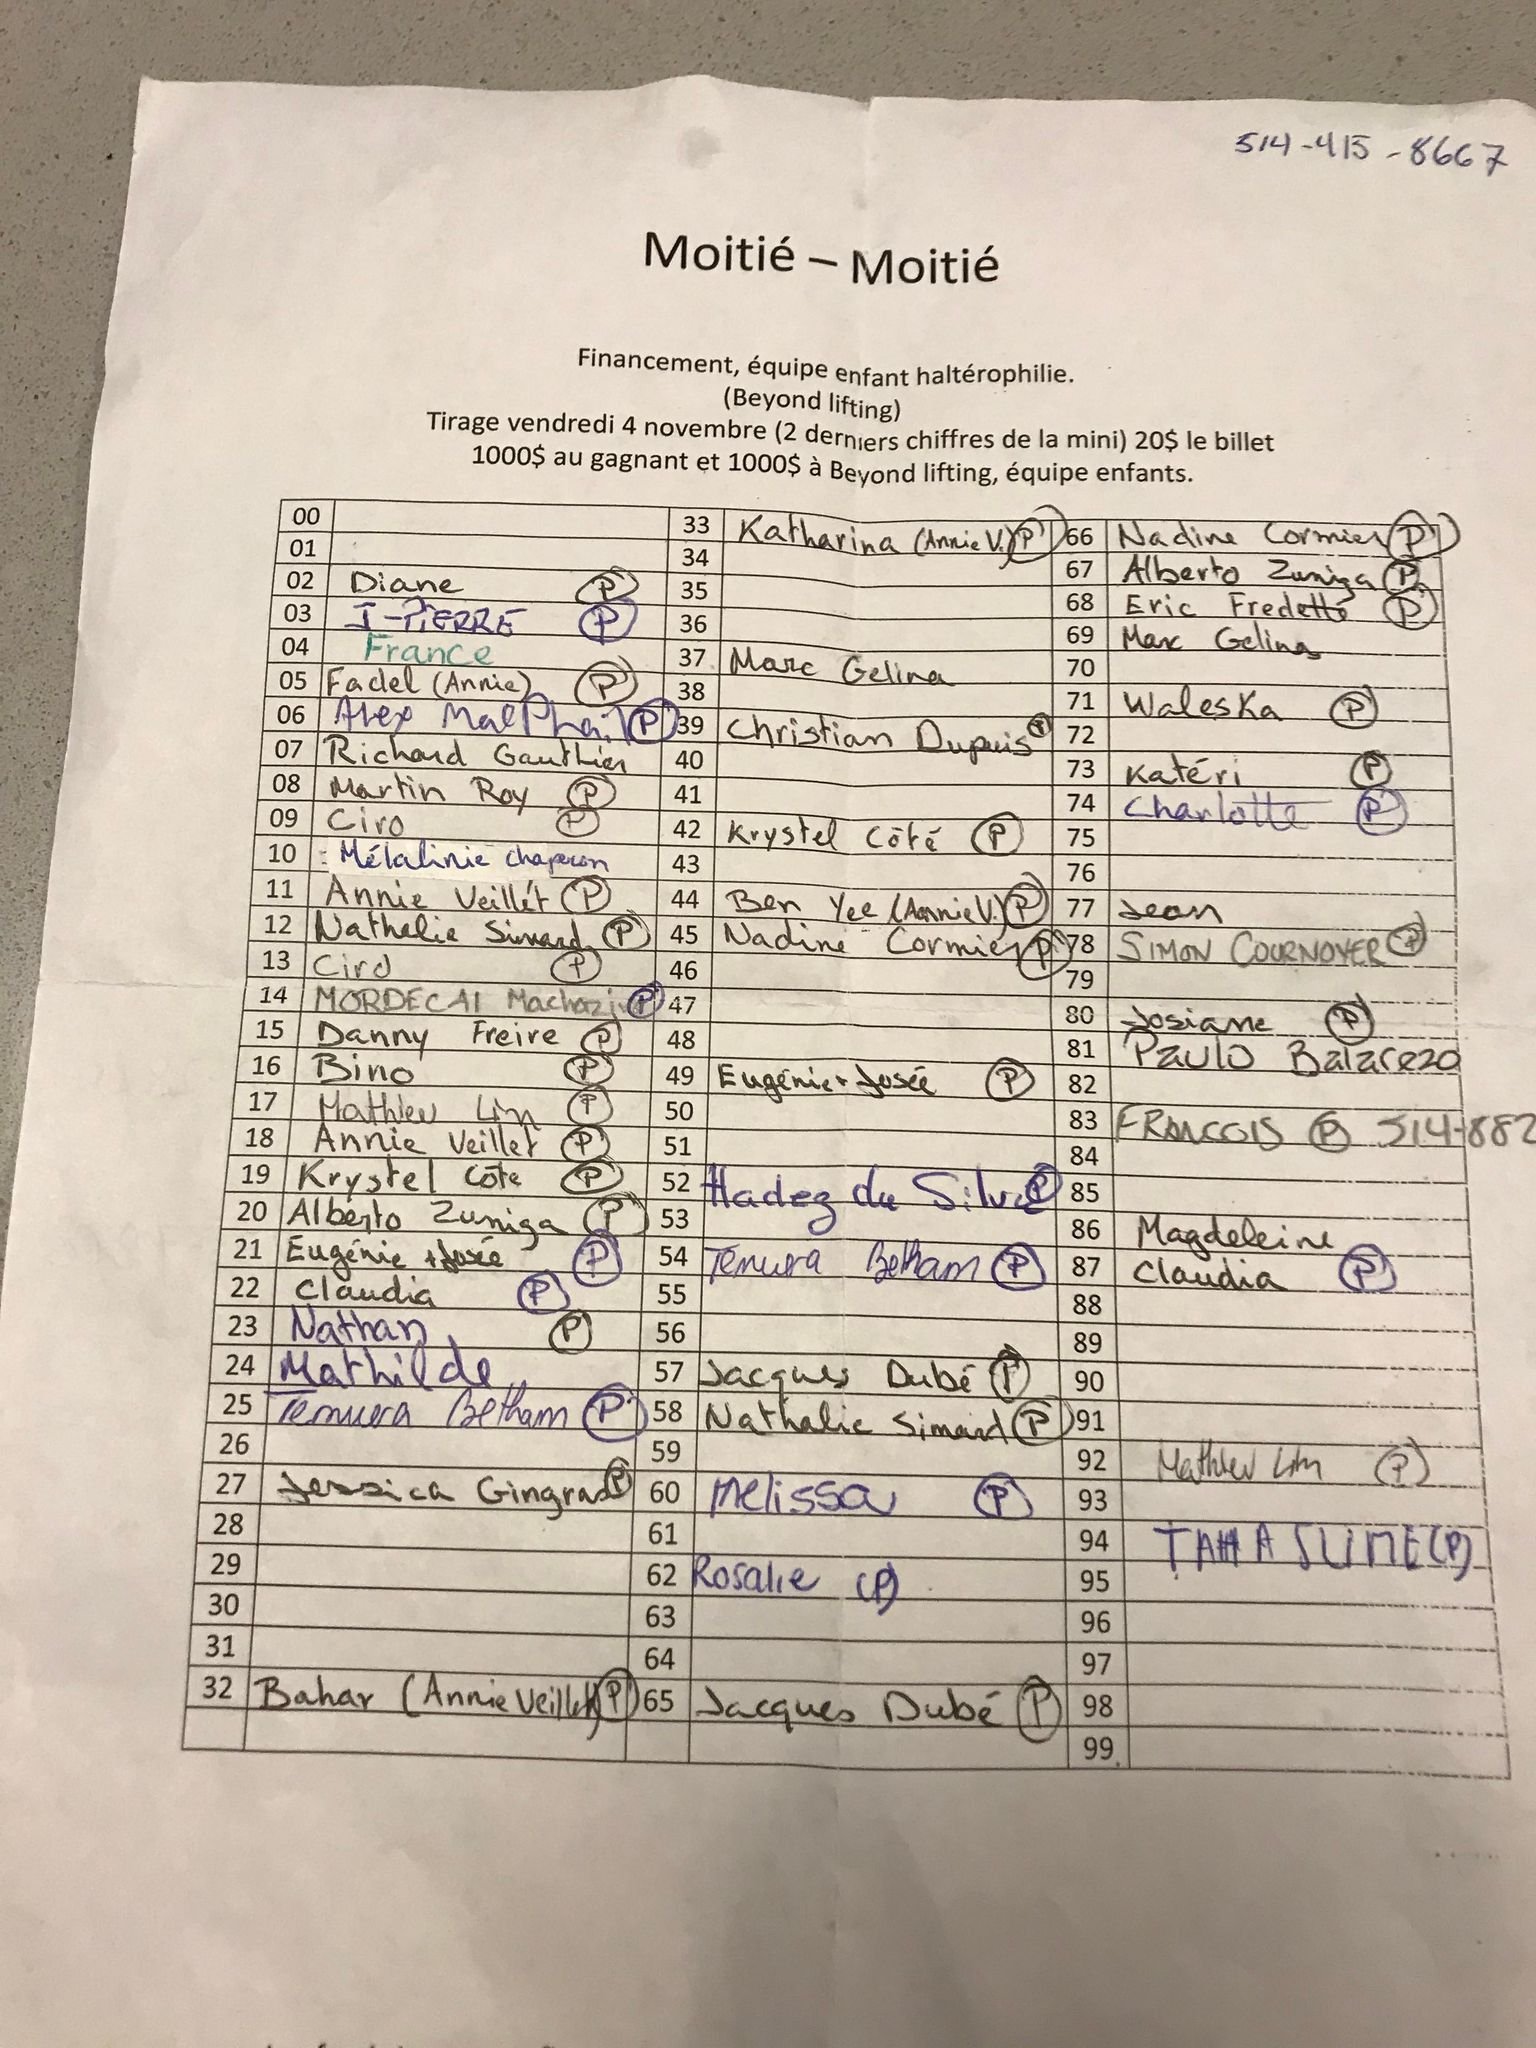 514-415-8667
Moitié – Moitié
Financement, équipe enfant haltérophilie.
(Beyond lifting)
Tirage vendredi 4 novembre (2 derniers chiffres de la mini) 20$ le billet
1000$ au gagnant et 1000$ à Beyond lifting, équipe enfants.
00
01
02 Diane P
03 J-PIERRE P
04 France
05 Fadel (Annie) P
06 Alex MalPhail P
07 Richard Gauthier
08 Martin Roy P
09 Ciro P
10 Mélalinie chaperon
11 Annie Veillet P
12 Nathalie Simard P
13 Ciro P
14 MORDECAI P
15 Danny Freire P
16 Bino P
17 Mathieu Lim P
18 Annie Veillet P
19 Krystel Côté P
20 Alberto Zuniga P
21 Eugénie + Josée P
22 Claudia P
23 Nathan P
24 Mathilde
25 Temura Betham P
26
27 Jessica Gingras P
28
29
30
31
32 Bahar (Annie Veillet) P
33 Katharina (Annie V.) P
34
35
36
37 Marc Gelina
38
39 Christian Dupuis P
40
41
42 Krystel Côté P
43
44 Ben Yee (Annie V.) P
45 Nadine Cormier P
46
47
48
49 Eugénie + Josée P
50
51
52 Hadez da Silva P
53
54 Temura Betham P
55
56
57 Jacques Dubé P
58 Nathalie Simard P
59
60 Melissa P
61
62 Rosalie (P)
63
64
65 Jacques Dubé P
66 Nadine Cormier P
67 Alberto Zuniga P
68 Eric Fredette P
69 Marc Gelinas
70
71 Waleska P
72
73 Katéri P
74 Charlotte P
75
76
77 Jean
78 SIMON COURNOYER P
79
80 Josiane P
81 PAULO Balarezo
82
83 FRANCOIS P 514-882
84
85
86 Magdeleine
87 Claudia P
88
89
90
91
92 Mathieu Lim P
93
94 TAHA SLIME (P)
95
96
97
98
99